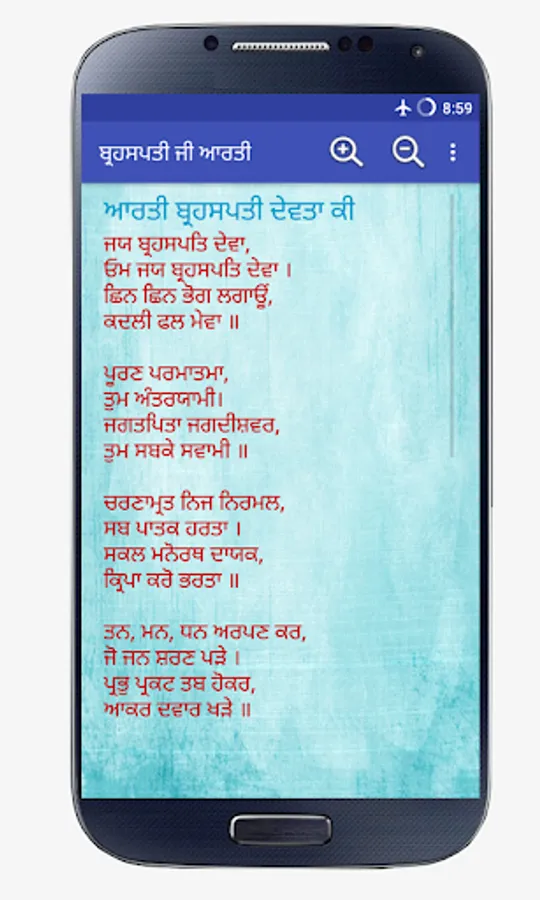 8:59
ਬ੍ਰਹਸਪਤੀ ਜੀ ਆਰਤੀ
ਆਰਤੀ ਬ੍ਰਹਸਪਤੀ ਦੇਵਤਾ ਕੀ
ਜਯ ਬ੍ਰਹਸਪਤਿ ਦੇਵਾ,
ਓਮ ਜਯ ਬ੍ਰਹਸਪਤਿ ਦੇਵਾ ।
ਛਿਨ ਛਿਨ ਭੋਗ ਲਗਾਊਂ,
ਕਦਲੀ ਫਲ ਮੇਵਾ ॥
ਪੂਰਣ ਪਰਮਾਤਮਾ,
ਤੁਮ ਅੰਤਰਯਾਮੀ।
ਜਗਤਪਿਤਾ ਜਗਦੀਸ਼ਵਰ,
ਤੁਮ ਸਬਕੇ ਸਵਾਮੀ ॥
ਚਰਣਾਮ੍ਰਤ ਨਿਜ ਨਿਰਮਲ,
ਸਬ ਪਾਤਕ ਹਰਤਾ ।
ਸਕਲ ਮਨੋਰਥ ਦਾਯਕ,
ਕ੍ਰਿਪਾ ਕਰੋ ਭਰਤਾ ॥
ਤਨ, ਮਨ, ਧਨ ਅਰਪਣ ਕਰ,
ਜੋ ਜਨ ਸ਼ਰਣ ਪੜੇ ।
ਪ੍ਰਭੁ ਪ੍ਰਕਟ ਤਬ ਹੋਕਰ,
ਆਕਰ ਦਵਾਰ ਖੜੇ ॥